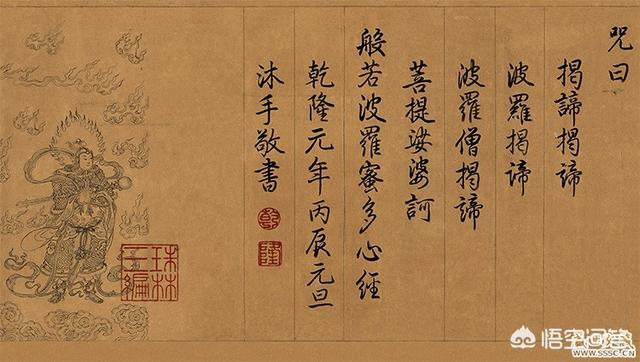 咒曰
揭諦揭諦
波羅揭諦
波羅僧揭諦
菩提娑婆訶
般若波羅蜜多心經
乾隆元年丙辰元旦
沐手敬書
乾
隆
珠林
三編
悟空问答
www.sssc.cn